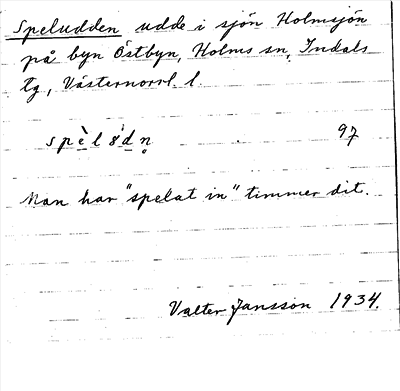 Speludden udde i sjön Holmsjön
på byn Östbyn, Holms sn, Indals
tg, Västernorrl. l.
spèl 8́dn̥ 97
Man har "spelat in" timmer dit.
Valter Jansson 1934.